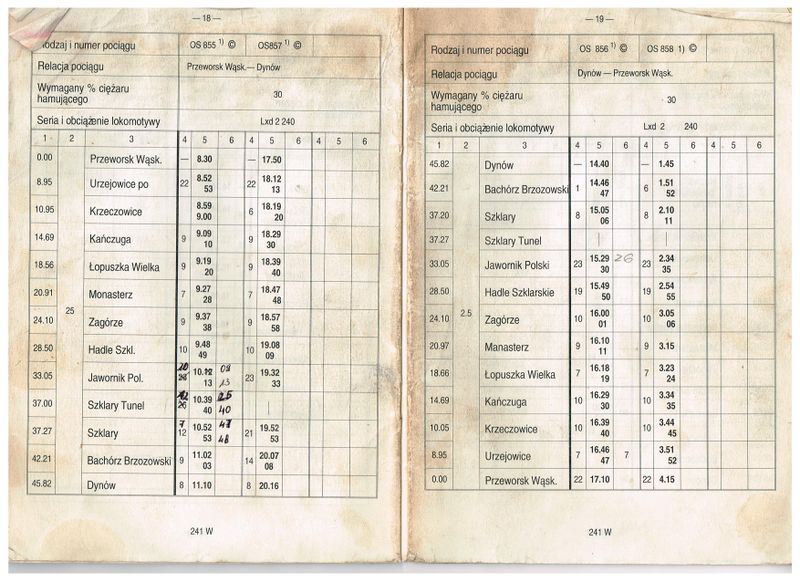 — 18 —
Rodzaj i numer pociągu OS 855 1) © OS857 1) ©
Relacja pociągu Przeworsk Wąsk.— Dynów
Wymagany % ciężaru
hamującego 30
Seria i obciążenie lokomotywy Lxd 2 240
1 2 3 4 5 6 4 5 6 4 5 6
0.00 Przeworsk Wąsk. — 8.30 — 17.50
8.95 Urzejowice po 22 8.52 22 18.12
53 13
10.95 Krzeczowice 8.59 6 18.19
9.00 20
14.69 Kańczuga 9 9.09 9 18.29
10 30
18.56 Łopuszka Wielka 9 9.19 9 18.39
20 40
20.91 Monasterz 7 9.27 7 18.47
28 48
25
24.10 Zagórze 9 9.37 9 18.57
38 58
28.50 Hadle Szkl. 10 9.48 10 19.08
49 09
20 08
33.05 Jawornik Pol. 10.12 23 19.32
13 13 33
12 25
37.00 Szklary Tunel 26 10.39 |
40 40
7 47
37.27 Szklary 12 10.52 21 19.52
53 48 53
42.21 Bachórz Brzozowski 9 11.02 14 20.07
03 08
45.82 Dynów 8 11.10 8 20.16
241 W
— 19 —
Rodzaj i numer pociągu OS 856 1) © OS 858 1) ©
Relacja pociągu Dynów — Przeworsk Wąsk.
Wymagany % ciężaru
hamującego 30
Seria i obciążenie lokomotywy Lxd 2 240
1 2 3 4 5 6 4 5 6 4 5 6
45.82 Dynów — 14.40 — 1.45
42.21 Bachórz Brzozowski 1 14.46 6 1.51
47 52
37.20 Szklary 8 15.05 8 2.10
06 11
37.27 Szklary Tunel | |
33.05 Jawornik Polski 23 15.29 26 23 2.34
30 35
28.50 Hadle Szklarskie 19 15.49 19 2.54
50 55
2.5
24.10 Zagórze 10 16.00 10 3.05
01 06
20.97 Manasterz 9 16.10 9 3.15
11
18.66 Łopuszka Wielka 7 16.18 7 3.23
19 24
14.69 Kańczuga 10 16.29 10 3.34
30 35
10.05 Krzeczowice 10 16.39 10 3.44
40 45
8.95 Urzejowice 7 16.46 7 3.51
47 52
0.00 Przeworsk Wąsk. 22 17.10 22 4.15
241 W